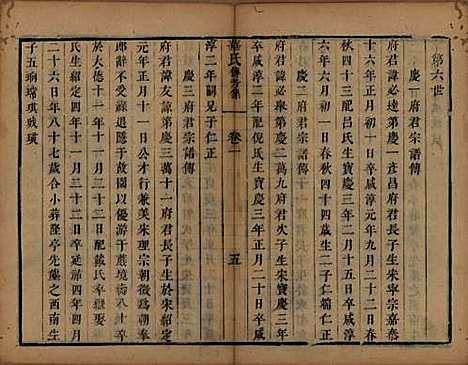 第六世
慶一府君宗譜傳
府君諱必達第慶一彥昌府君長子生於宋寧宗嘉泰
年正月初一日卒咸淳元年九月二十二日春
秋四十三配呂氏生寶慶三年二月十五日卒咸淳
六年六月初一日春秋四十四歲生二子仁範仁正
慶二府君宗譜傳
府君諱必舉第慶二萬九府君次子生宋寶慶三年
卒咸淳二年配倪氏生寶慶三年正月二十日卒咸
華氏傳芳集
卷二
五
淳二年嗣兄子仁正
慶三府君宗譜傳
府君諱友諒第慶三萬十一府君長子生於宋紹定
元年正月十一日公才行兼美宋理宗朝徵為承奉
郎辭不赴放於故園以優游于蔵境街八十卒
於大德十一年十一月二十二日配戴氏卒
民生紹定三年五月二十二日卒延祐四年四月
二十六日年八十七歲合葬小隆亭先塋之西南生
子五珦璿琪瑛璜